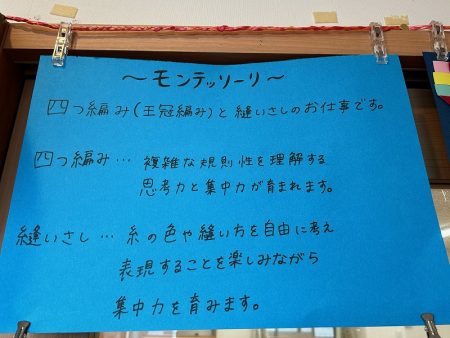 ～モンテッソーリ～
四つ編み(王冠編み)と縫いさしのお仕事です。
四つ編み… 複雑な規則性を理解する
思考力と集中力が育まれます。
縫いさし… 糸の色や縫い方を自由に考え
表現することを楽しみながら
集中力を育みます。